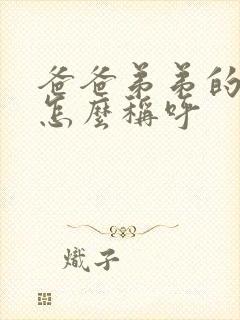 爸爸弟弟的
怎麼稱呼
熾子